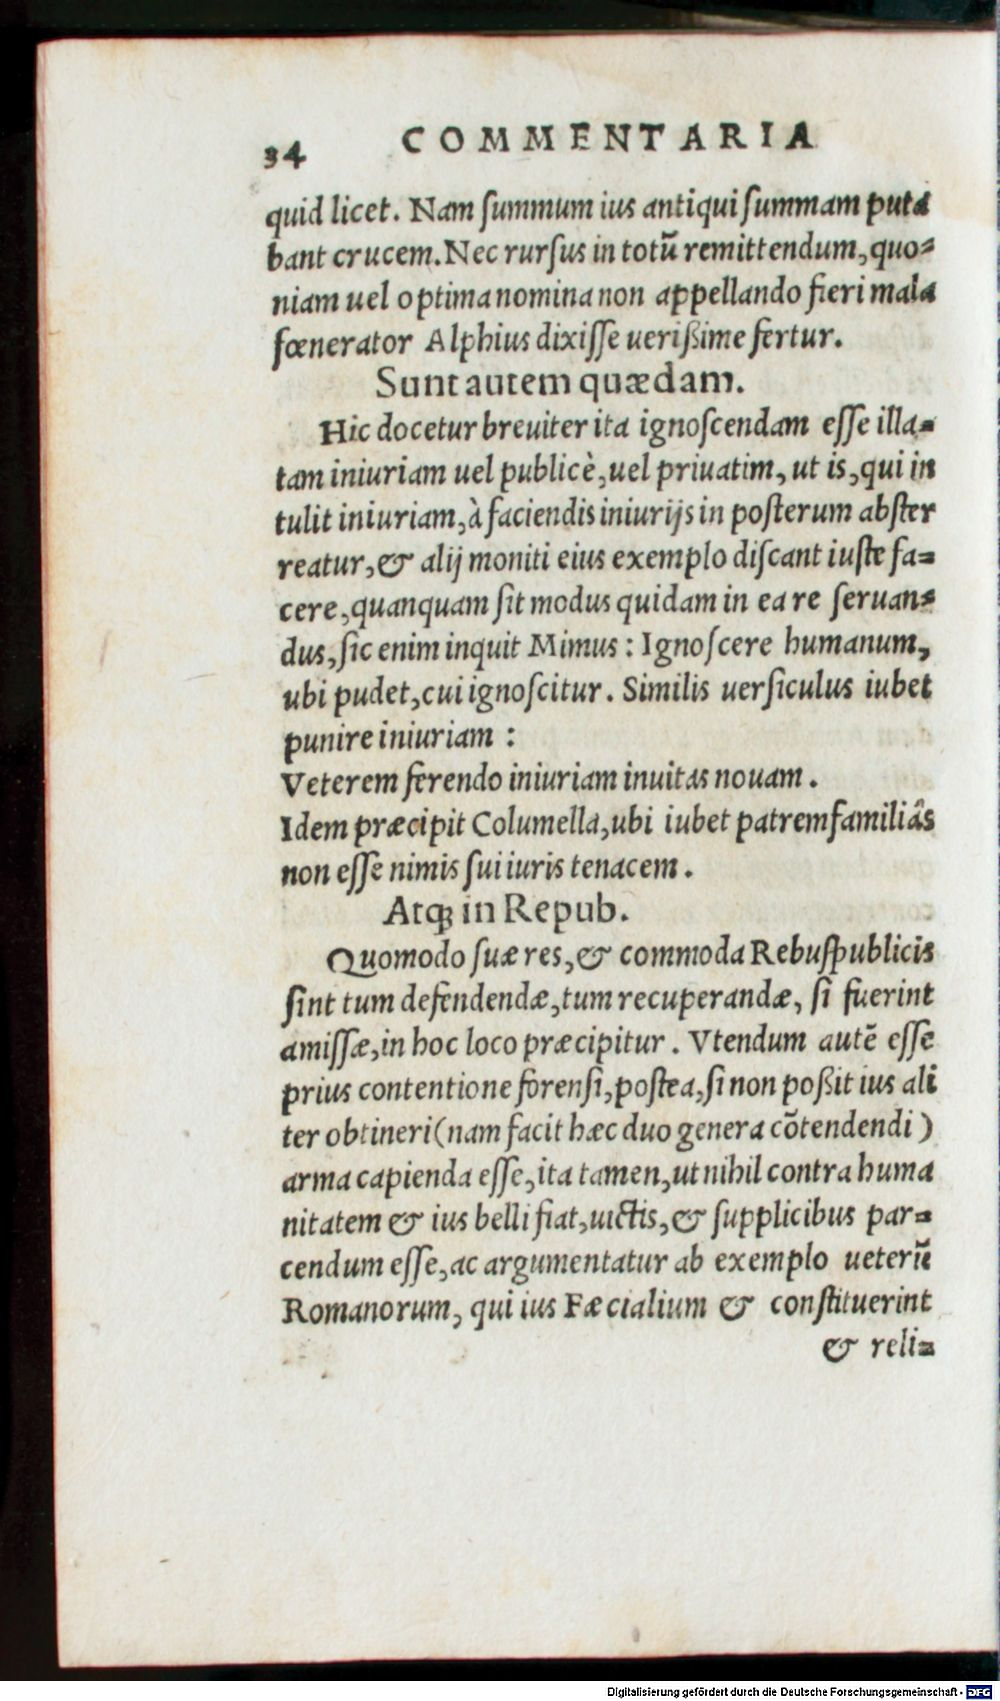 34 COMMENTARIA
quid licet. Nam ſummum ius antiqui ſummam puta
bant crucem. Nec rurſus in totũ remittendum, quo-
niam uel optima nomina non appellando fieri mala
fœnerator Alphius dixiſſe uerißime fertur.
Sunt autem quædam.
Hic docetur breuiter ita ignoſcendam eſſe illa-
tam iniuriam uel publicè, uel priuatim, ut is, qui in
tulit iniuriam, à faciendis iniurijs in poſterum abſter
reatur, & alij moniti eius exemplo diſcant iuſte fa-
cere, quanquam ſit modus quidam in ea re ſeruan-
dus, ſic enim inquit Mimus: Ignoſcere humanum,
ubi pudet, cui ignoſcitur. Similis uerſiculus iubet
punire iniuriam :
Veterem ferendo iniuriam inuitas nouam.
Idem præcipit Columella, ubi iubet patremfamiliâs
non eſſe nimis ſui iuris tenacem.
Atqꝫ in Repub.
Quomodo ſuæ res, & commoda Rebuſpublicis
ſint tum defendendæ, tum recuperandæ, ſi fuerint
amiſſæ, in hoc loco præcipitur. Vtendum autẽ eſſe
prius contentione forenſi, poſtea, ſi non poßit ius ali
ter obtineri (nam facit hæc duo genera cõtendendi)
arma capienda eſſe, ita tamen, ut nihil contra huma
nitatem & ius belli fiat, uictis, & ſupplicibus par-
cendum eſſe, ac argumentatur ab exemplo ueterũ
Romanorum, qui ius Fæcialium & conſtituerint
& reli-
Digitalisierung gefördert durch die Deutsche Forschungsgemeinschaft - DFG